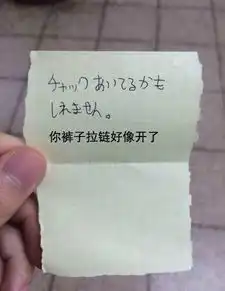 チャックあいてるかも
しれません。
你裤子拉链好像开了